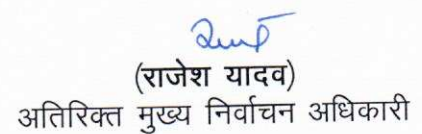 (राजेश यादव)
अतिरिक्त मुख्य निर्वाचन अधिकारी